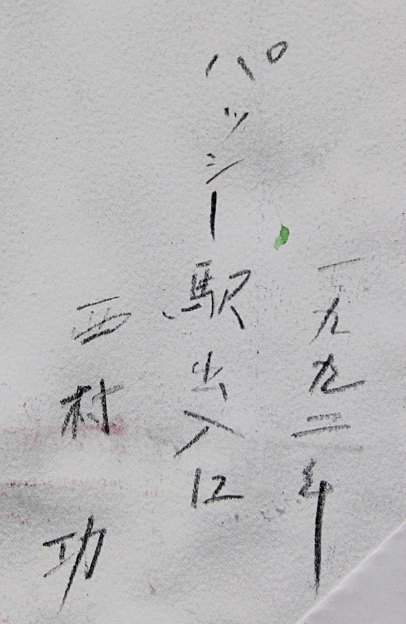 一九九二年
パッシー駅出入口
西村功